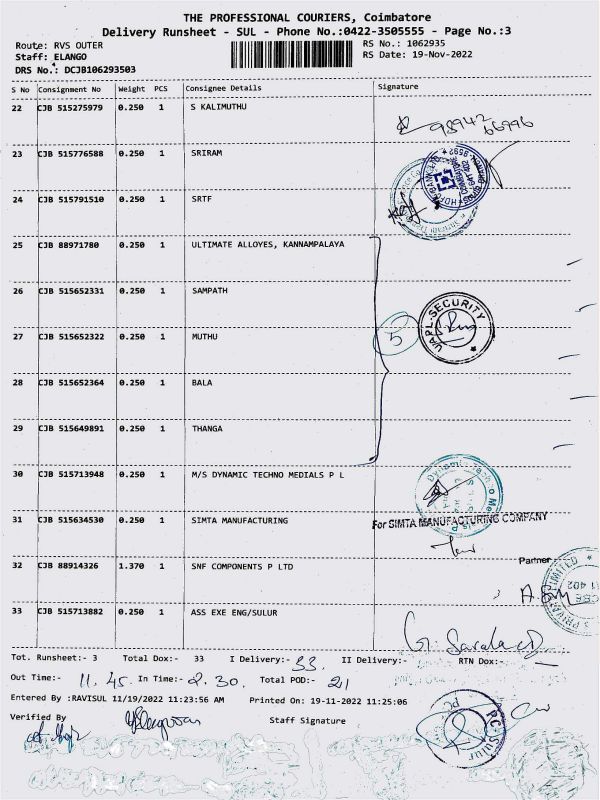 THE PROFESSIONAL COURIERS, Coimbatore
Delivery Runsheet - SUL - Phone No.:0422-3505555 - Page No.:3
Route: RVS OUTER
RS No.: 1062935
Staff: ELANGO
RS Date: 19-Nov-2022
DRS No.: DCJB106293503
S No Consignment No Weight PCS Consignee Details Signature
22 CJB 515275979 0.250 1 S KALIMUTHU
98942 66996
23 CJB 515776588 0.250 1 SRIRAM
24 CJB 515791510 0.250 1 SRTF
25 CJB 88971780 0.250 1 ULTIMATE ALLOYES, KANNAMPALAYA
26 CJB 515652331 0.250 1 SAMPATH
UAPL-SECURITY
27 CJB 515652322 0.250 1 MUTHU
5
28 CJB 515652364 0.250 1 BALA
29 CJB 515649891 0.250 1 THANGA
30 CJB 515713948 0.250 1 M/S DYNAMIC TECHNO MEDIALS P L
31 CJB 515634530 0.250 1 SIMTA MANUFACTURING
For SIMTA MANUFACTURING COMPANY
Partner
32 CJB 88914326 1.370 1 SNF COMPONENTS P LTD
33 CJB 515713882 0.250 1 ASS EXE ENG/SULUR
Tot. Runsheet:- 3 Total Dox:- 33 I Delivery:- 33. II Delivery:- RTN Dox:- —
Out Time:- 11.45. In Time:- 2.30. Total POD:- 21
Entered By :RAVISUL 11/19/2022 11:23:56 AM Printed On: 19-11-2022 11:25:06
Verified By
Staff Signature